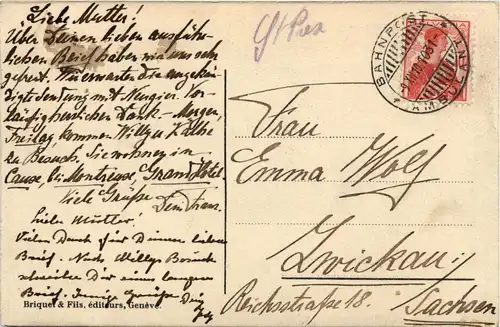 Liebe Mutter!
Über Deinen lieben ausführ-
lichen Brief haben wir uns sehr
gefreut. Wir erwarten die angekün-
digte Sendung mit Neugier. Vor-
läufig herzlichen Dank. - Morgen,
Freitag, kommen Willy u. Käthe
zu Besuch. Sie wohnen in
Caux, bei Montreux, Grand Hotel.
Viele Grüße
Dein Franz.
Liebe Mutter!
Vielen Dank für Deinen lieben
Brief. Nach Willys Besuch
schreibe Dir einen langen
Brief. Innige Grüße Dein
Briquet & Fils, éditeurs, Genève.
BAHNPOST
AMBULANT
Frau
Emma Wolf
Zwickau
Reichsstraße 18.
Sachsen